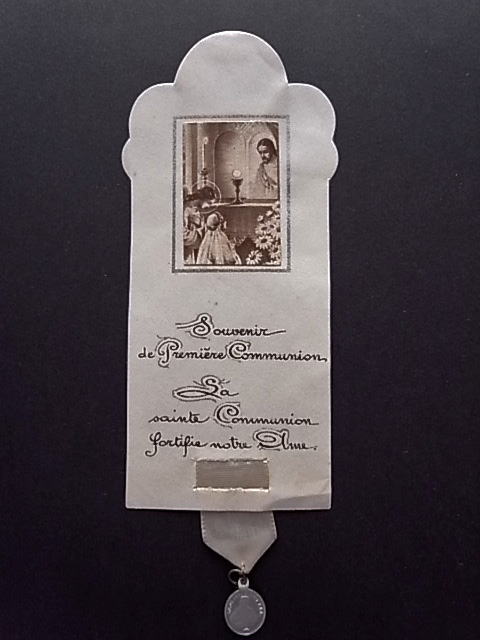 Souvenir
de Première Communion
La
sainte Communion
fortifie notre Âme.